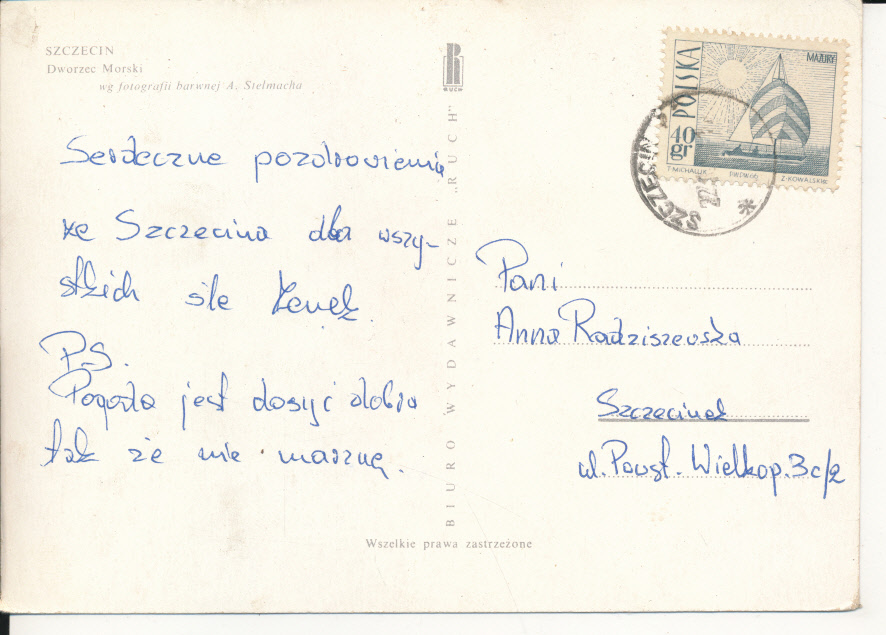 SZCZECIN
Dworzec Morski
wg fotografii barwnej A. Stelmacha
Serdeczne pozdrowienia
ze Szczecina dla wszy-
stkich śle Zenek.
P.S.
Pogoda jest dosyć dobra
tak że nie marznę.
RUCH
BIURO WYDAWNICZE „RUCH"
Wszelkie prawa zastrzeżone
POLSKA
MAZURY
40
gr
T. MICHALUK
Z. KOWALSKI
SZCZECIN
Pani
Anna Radziszewska
Szczecinek
ul. Powst. Wielkop. 3c/2